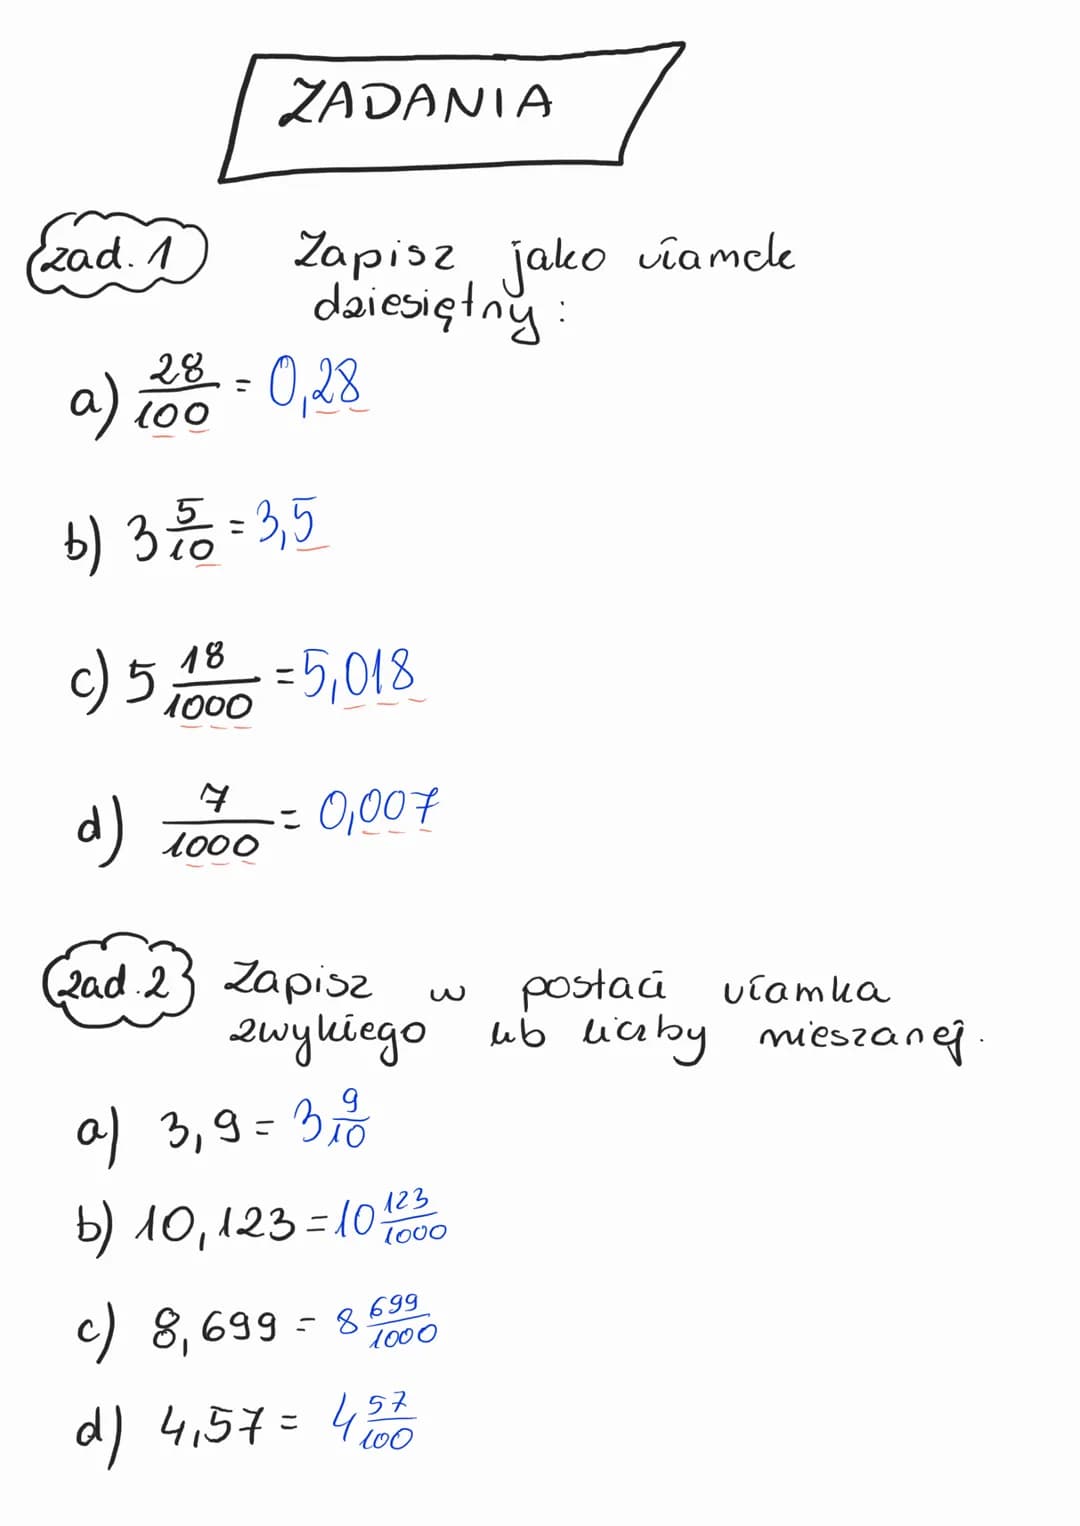 ZADANIA
zad. 1 Zapisz jako ułamek
dziesiętny:
a) 28/100 = 0,28
b) 3 5/10 = 3,5
c) 5 18/1000 = 5,018
d) 7/1000 = 0,007
zad. 2 Zapisz w postaci ułamka
zwykłego lub liczby mieszanej.
a) 3,9 = 3 9/10
b) 10,123 = 10 123/1000
c) 8,699 = 8 699/1000
d) 4,57 = 4 57/100